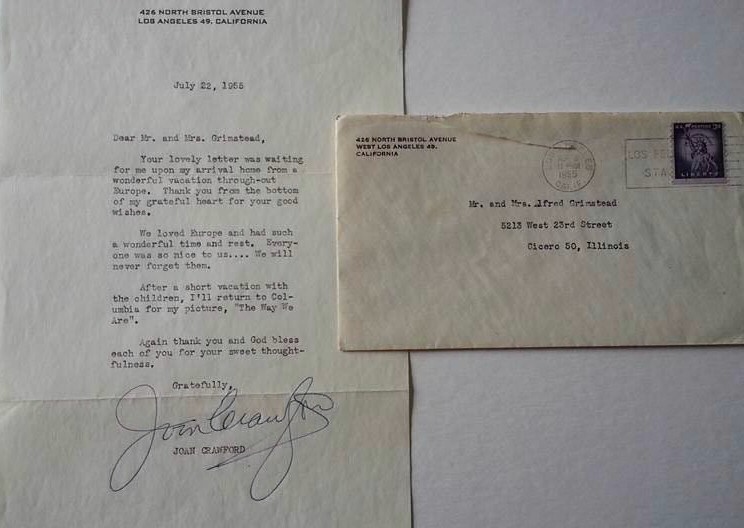 426 NORTH BRISTOL AVENUE
LOS ANGELES 49, CALIFORNIA
July 22, 1955
Dear Mr. and Mrs. Grimstead,
Your lovely letter was waiting
for me upon my arrival home from a
wonderful vacation through-out
Europe. Thank you from the bottom
of my grateful heart for your good
wishes.
We loved Europe and had such
a wonderful time and rest. Every-
one was so nice to us.... We will
never forget them.
After a short vacation with
the children, I'll return to Col-
umbia for my picture, "The Way We
Are".
Again thank you and God bless
each of you for your sweet thought-
fulness.
Gratefully,
Joan Crawford
JOAN CRAWFORD
426 NORTH BRISTOL AVENUE
WEST LOS ANGELES 49,
CALIFORNIA
1955
CALIF
LOS
STA
U.S. POSTAGE 3¢
LIBERTY
Mr. and Mrs. Alfred Grimstead
5213 West 23rd Street
Cicero 50, Illinois